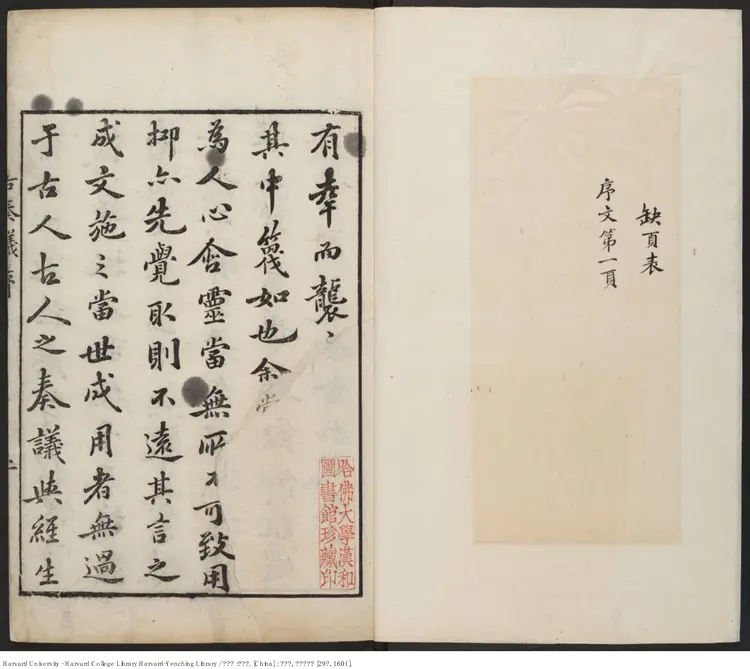 缺頁表
序文第一頁
有牽而襲〻
其中筏如也余
為人心含靈當無所不可致用
抑亦先覺取則不遠其言之
成文施之當世成用者無過
于古人古人之奏議與經生
古奏議序
哈佛大學漢和
圖書館珍藏印
Harvard University - Harvard College Library Harvard-Yenching Library / ??? : ???. [China] : ???, ????? [29?, 1601].